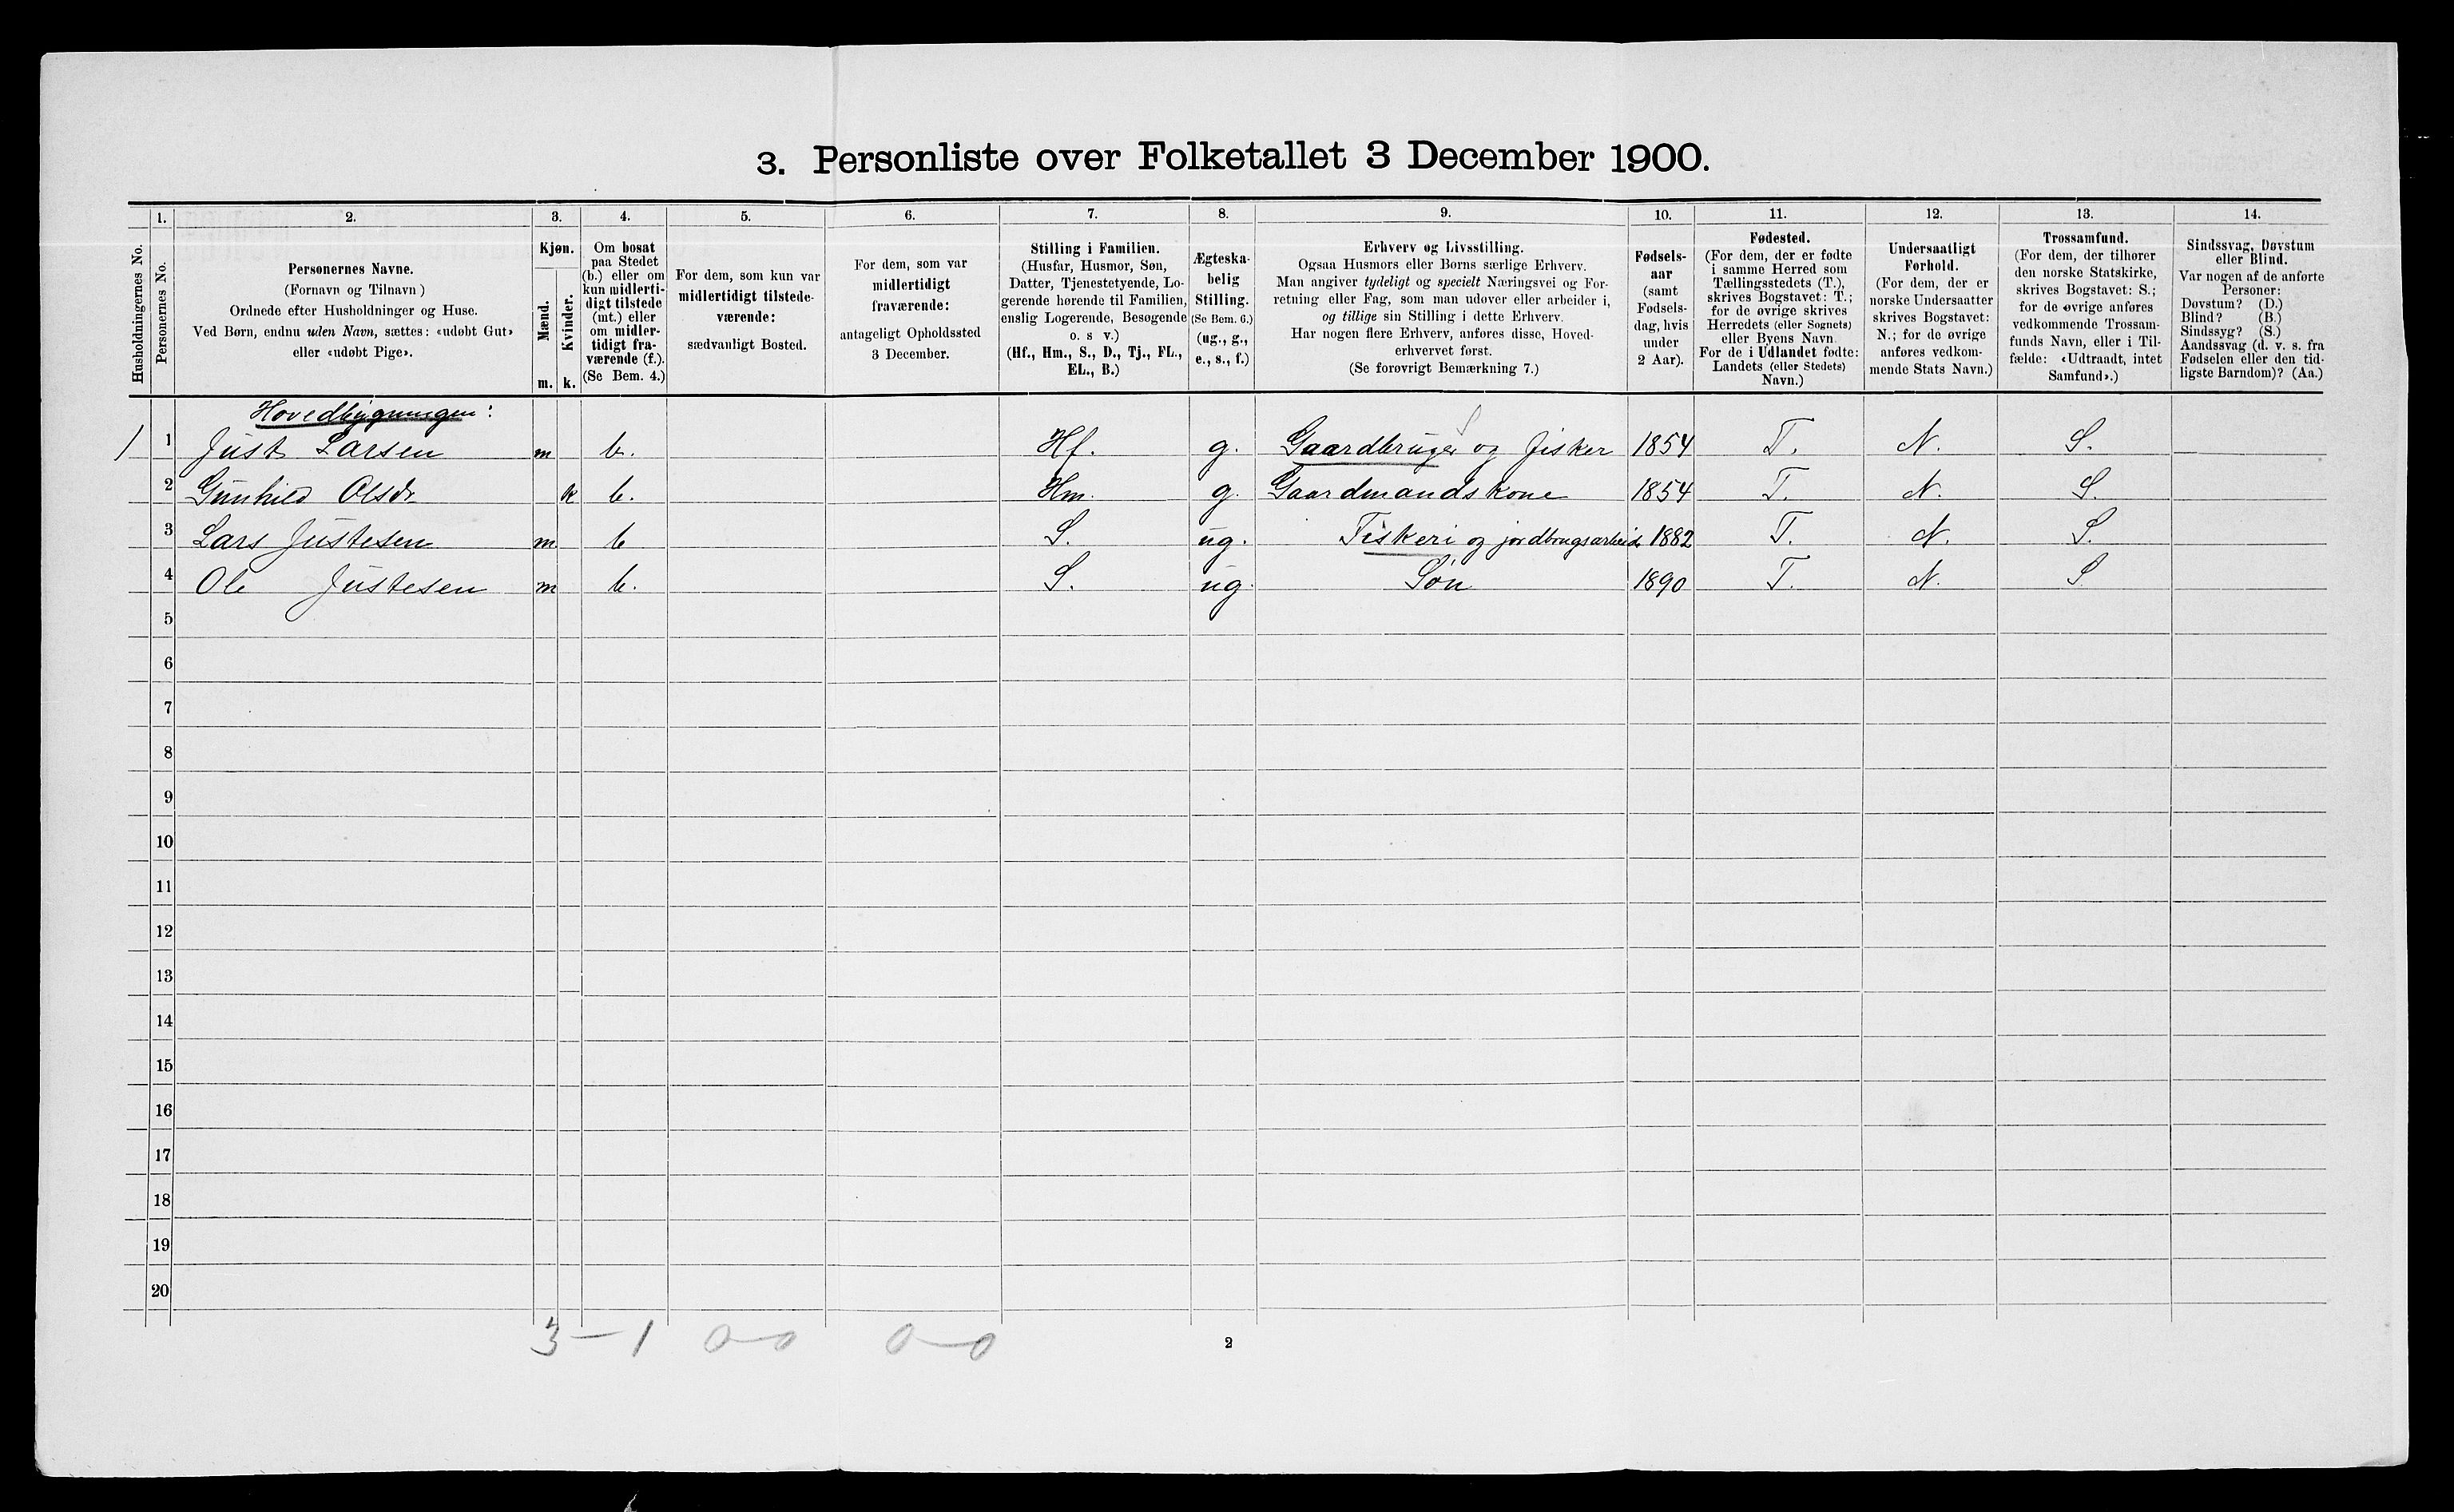 3. Personliste over Folketallet 3 December 1900.
1. 2. 3. 4. 5. 6. 7. 8. 9. 10. 11. 12. 13. 14.
Husholdningernes No.
Personernes No.
Personernes Navne.
(Fornavn og Tilnavn)
Ordnede efter Husholdninger og Huse.
Ved Børn, endnu uden Navn, sættes: «udøbt Gut»
eller «udøbt Pige».
Kjøn.
Mænd.
Kvinder.
m. k.
Om bosat
paa Stedet
(b.) eller om
kun midlerti-
digt tilstede
(mt.) eller
om midler-
tidigt fra-
værende (f.).
(Se Bem. 4.)
For dem, som kun var
midlertidigt tilstede-
værende:
sædvanligt Bosted.
For dem, som var
midlertidigt
fraværende:
antageligt Opholdssted
3 December.
Stilling i Familien.
(Husfar, Husmor, Søn,
Datter, Tjenestetyende, Lo-
gerende hørende til Familien,
enslig Logerende, Besøgende
o. s v.)
(Hf., Hm., S., D., Tj., FL.,
EL., B.)
Ægteska-
belig
Stilling.
(Se Bem. 6.)
(ug., g.,
e., s., f.)
Erhverv og Livsstilling.
Ogsaa Husmors eller Børns særlige Erhverv.
Man angiver tydeligt og specielt Næringsvei og For-
retning eller Fag, som man udover eller arbeider i,
og tillige sin Stilling i dette Erhverv.
Har nogen flere Erhverv, anføres disse, Hoved-
erhvervet først.
(Se forøvrigt Bemærkning 7.)
Fødsels-
aar
(samt
Fødsels-
dag, hvis
under
2 Aar).
Fødested.
(For dem, der er fødte
i samme Herred som
Tællingsstedets (T.),
skrives Bogstavet: T.;
for de øvrige skrives
Herredets (eller Sognets)
eller Byens Navn.
For de i Udlandet fødte:
Landets (eller Stedets)
Navn.)
Undersaatligt
Forhold.
(For dem, der er
norske Undersaatter
skrives Bogstavet:
N.; for de øvrige
anføres vedkom-
mende Stats Navn.)
Trossamfund.
(For dem, der tilhører
den norske Statskirke,
skrives Bogstavet: S.;
for de øvrige anføres
vedkommende Trossam-
funds Navn, eller i Til-
fælde: «Udtraadt, intet
Samfund».)
Sindssvag, Døvstum
eller Blind.
Var nogen af de anførte
Personer:
Døvstum? (D.)
Blind? (B.)
Sindssyg? (S.)
Aandssvag (d. v. s. fra
Fødselen eller den tid-
ligste Barndom)? (Aa.)
Hovedbygningen:
1 1 Just Larsen m b. Hf. g. Gaardbruger og fisker 1854 T. N. S.
2 Gunhild Olsdr k b. Hm. g. Gaardmandskone 1854 T. N. S.
3 Lars Justesen m b S. ug. Fiskeri og jordbrugsarbeide 1882 T. N. S.
4 Ole Justesen m b. S. ug. Søn 1890 T. N. S
5
6
7
8
9
10
11
12
13
14
15
16
17
18
19
20
3 – 1 0–0 0–0
2